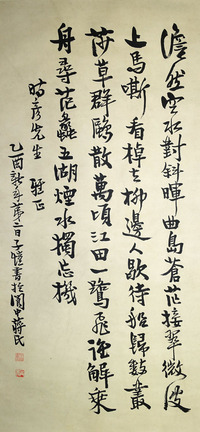 澹然空水對斜暉曲島蒼茫接翠微波
上馬嘶看棹去柳邊人歇待船歸數叢
莎草群鷗散萬頃江田一鷺飛誰解乘
舟尋范蠡五湖煙水獨忘機
時彥先生 雅正
乙酉新年第日子愷書於閬中蔣氏